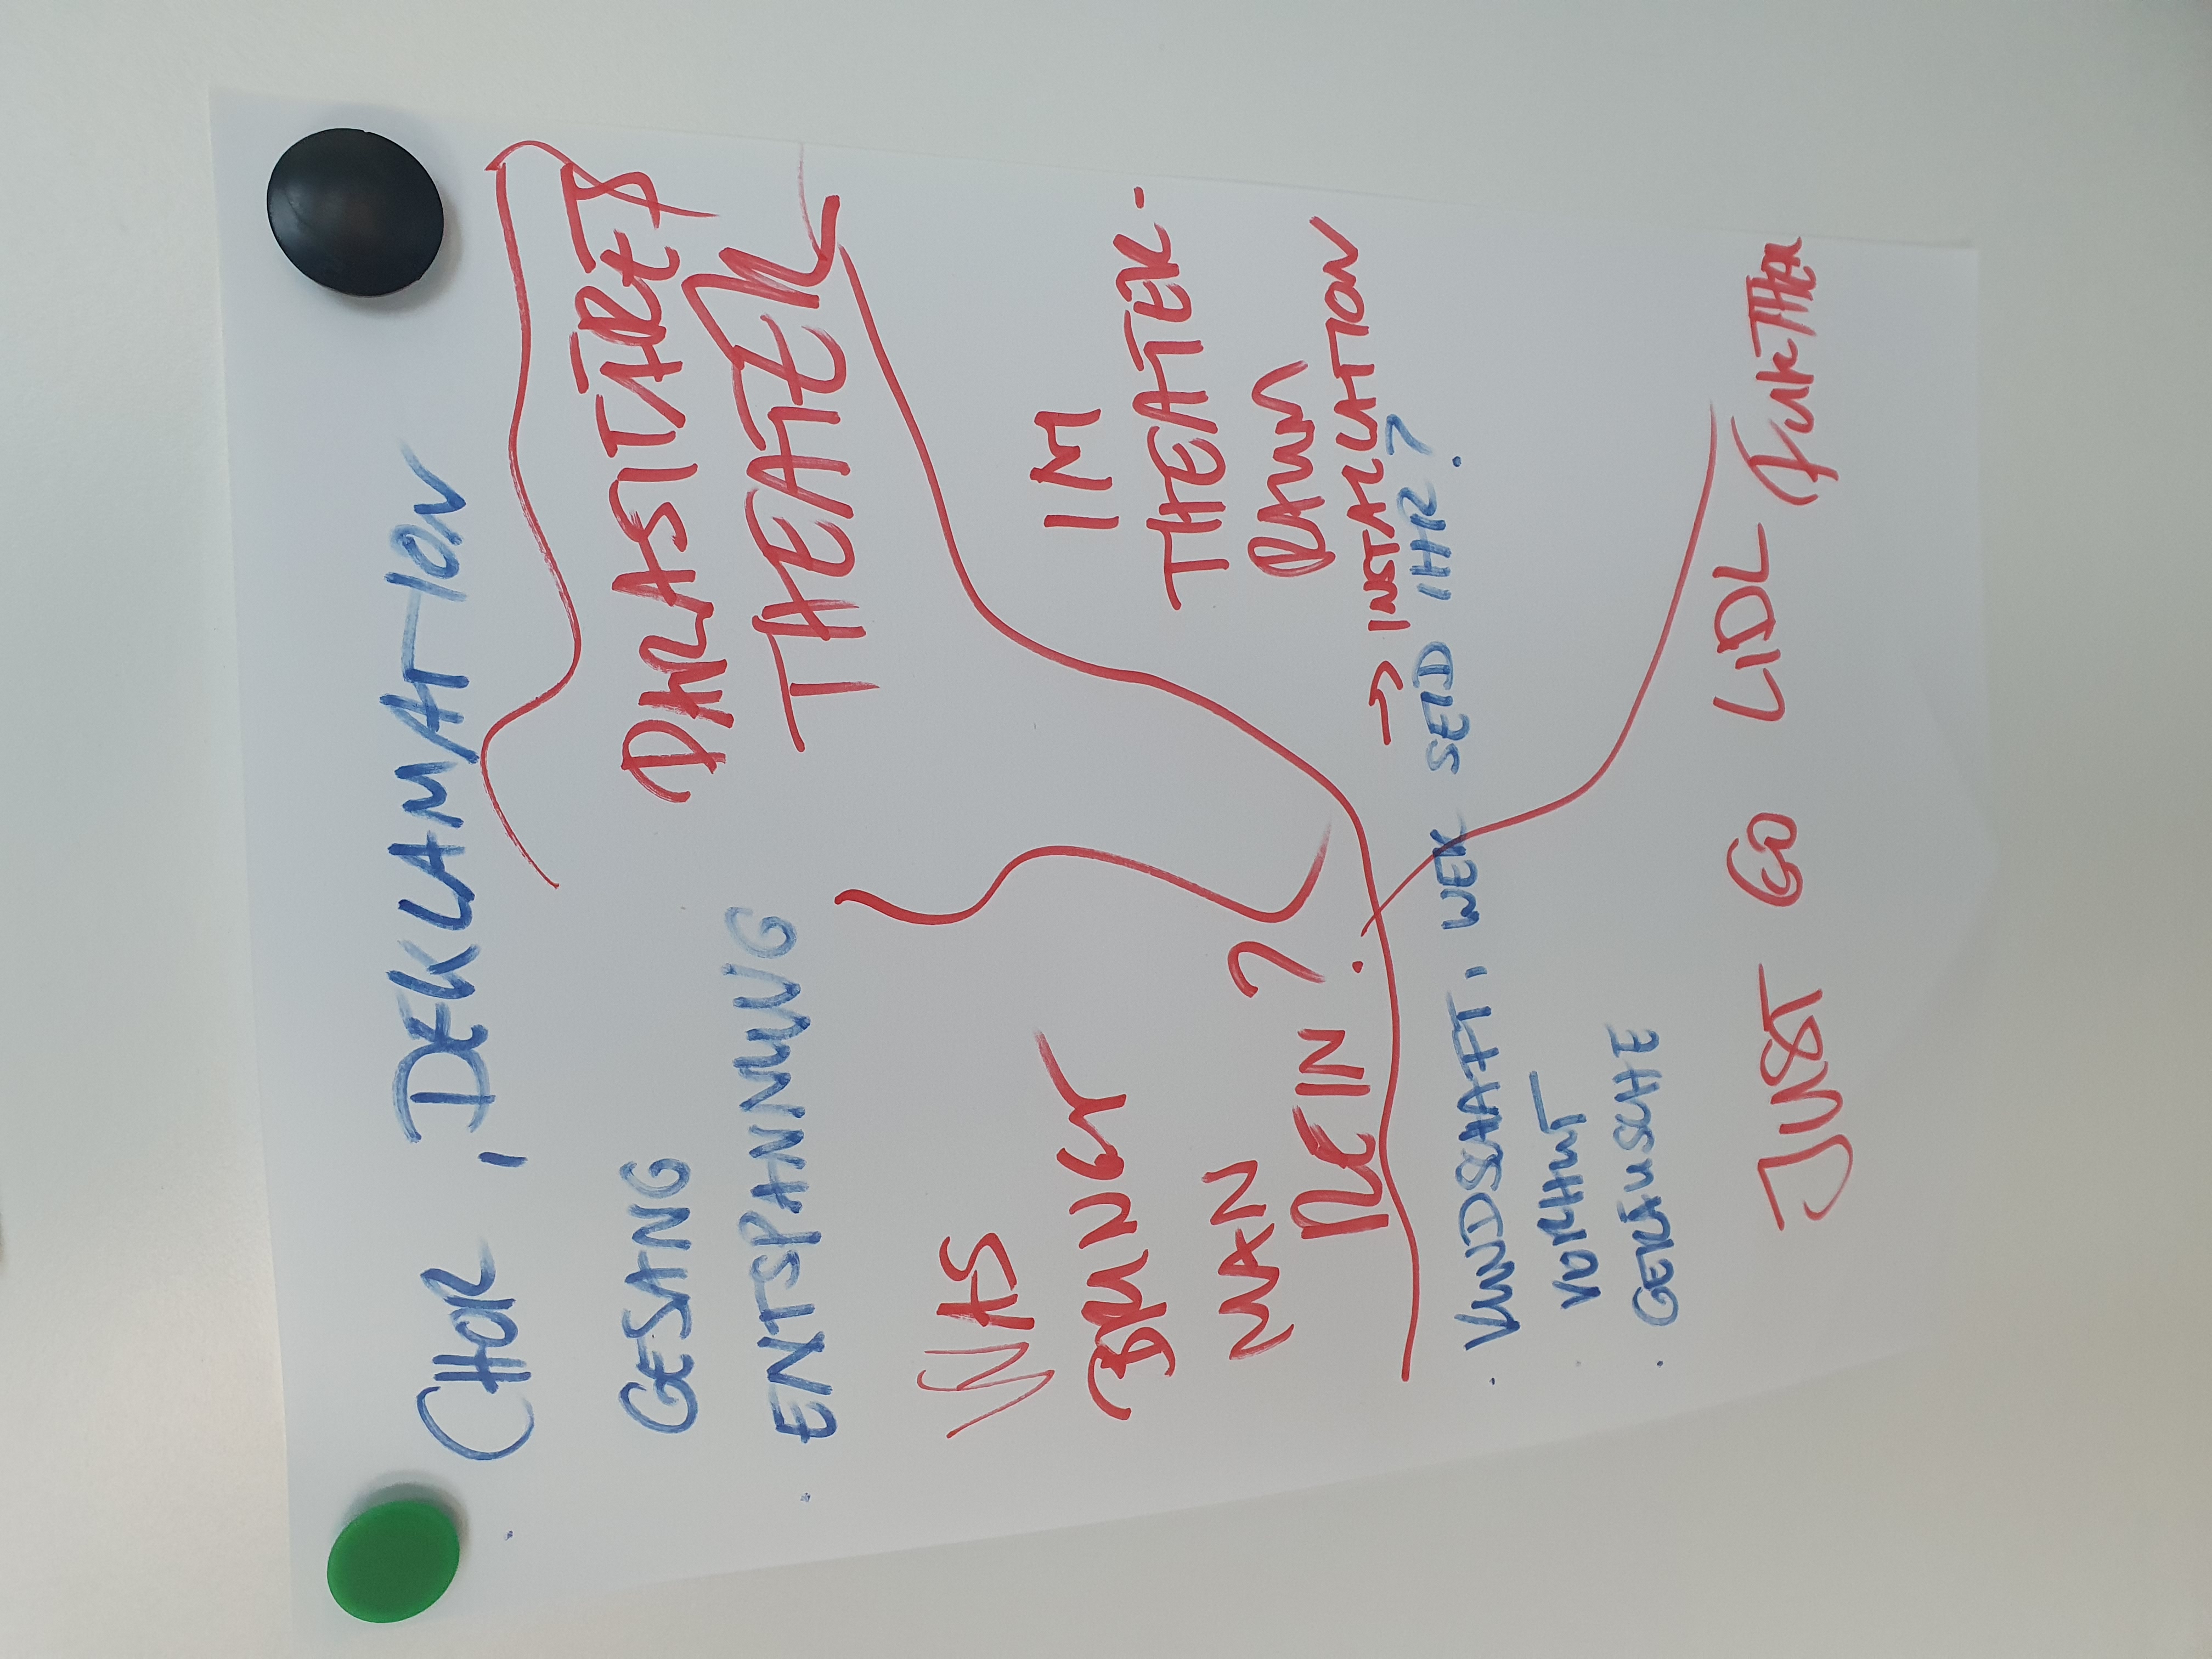 · CHOR, DEKLAMATION
GESANG
· ENTSPANNUNG
PARASITÄRES
THEATER
WAS
BRINGT
MAN
REIN?
IM
THEATER-
RAUM
→ INSTALLATION
· KUNDSCHAFT: WER SEID IHR?
· GERÄUSCHE
JUST GO LIDL